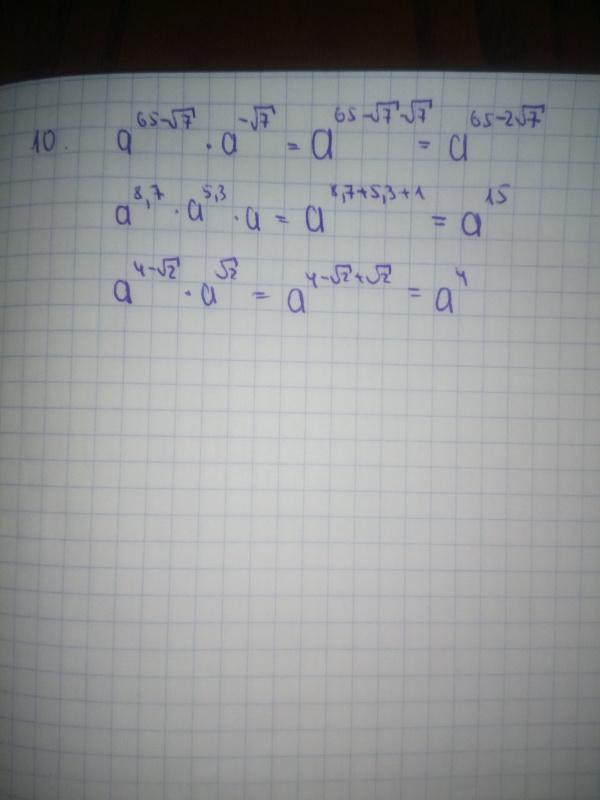 10. a^(65-√7) · a^(-√7) = a^(65-√7-√7) = a^(65-2√7)
a^(8,7) · a^(5,3) · a = a^(8,7+5,3+1) = a^(15)
a^(4-√2) · a^(√2) = a^(4-√2+√2) = a^4